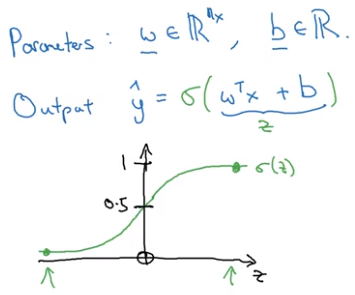 Parameters: w ∈ ℝⁿˣ, b ∈ ℝ.
Output ŷ = σ(wᵀx + b)
z
1
σ(z)
0.5
0
z